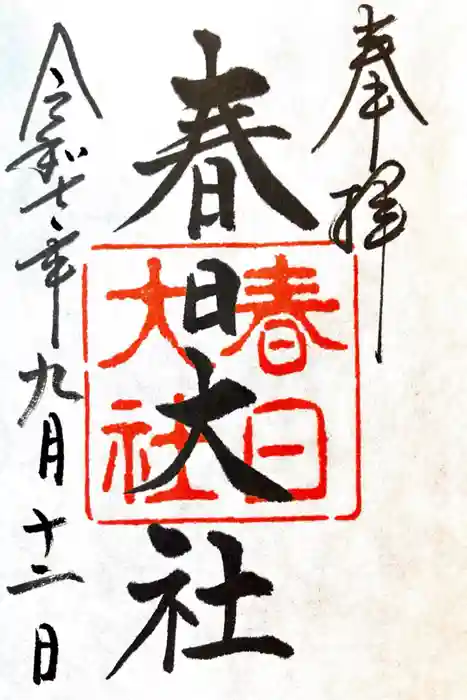 奉拝
春日大社
春日
大社
令和七年九月十二日